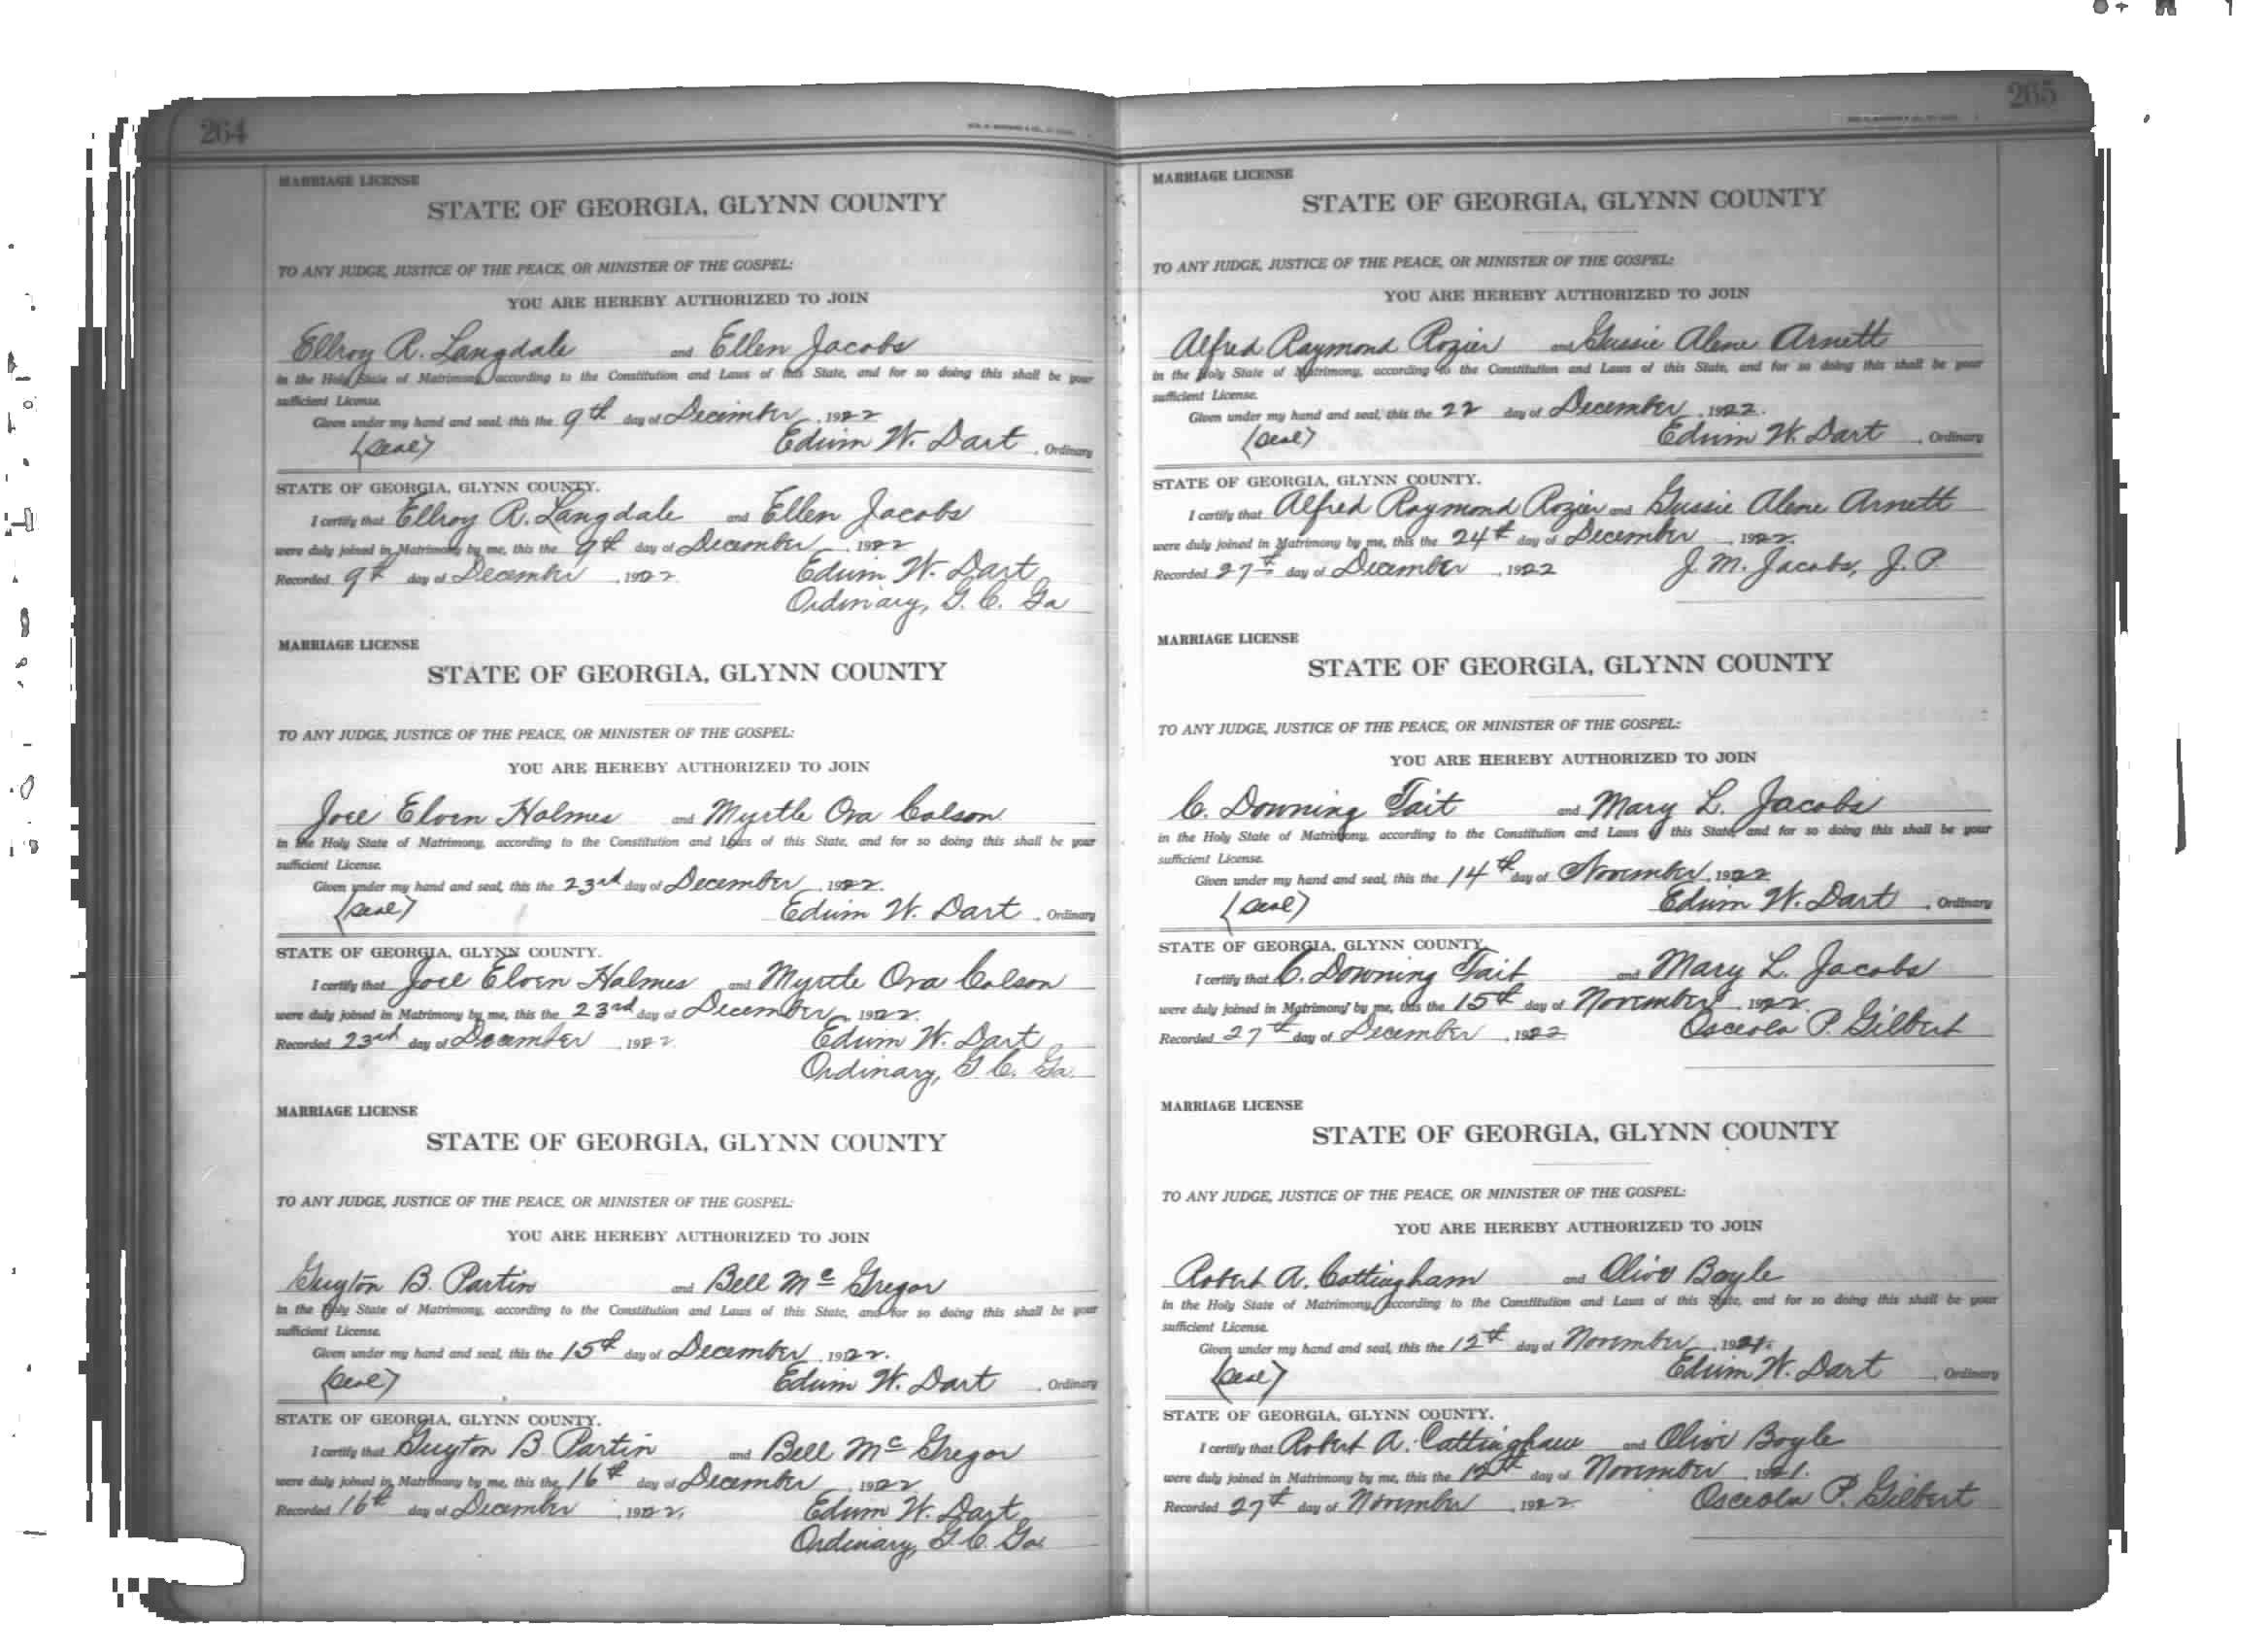 264
MARRIAGE LICENSE
STATE OF GEORGIA, GLYNN COUNTY
TO ANY JUDGE, JUSTICE OF THE PEACE, OR MINISTER OF THE GOSPEL:
YOU ARE HEREBY AUTHORIZED TO JOIN
Ellroy A. Langdale and Ellen Jacobs
in the Holy State of Matrimony, according to the Constitution and Laws of this State, and for so doing this shall be your
sufficient License.
Given under my hand and seal, this the 9th day of December, 1922
(Seal) Edwin W. Dart, Ordinary
STATE OF GEORGIA, GLYNN COUNTY.
I certify that Ellroy A. Langdale and Ellen Jacobs
were duly joined in Matrimony by me, this the 9th day of December, 1922
Recorded 9th day of December, 1922 Edwin W. Dart
Ordinary, G. C. Ga
MARRIAGE LICENSE
STATE OF GEORGIA, GLYNN COUNTY
TO ANY JUDGE, JUSTICE OF THE PEACE, OR MINISTER OF THE GOSPEL:
YOU ARE HEREBY AUTHORIZED TO JOIN
Joel Elven Holmes and Myrtle Ora Colson
in the Holy State of Matrimony, according to the Constitution and Laws of this State, and for so doing this shall be your
sufficient License.
Given under my hand and seal, this the 23rd day of December, 1922.
(Seal) Edwin W. Dart, Ordinary
STATE OF GEORGIA, GLYNN COUNTY.
I certify that Joel Elven Holmes and Myrtle Ora Colson
were duly joined in Matrimony by me, this the 23rd day of December, 1922.
Recorded 23rd day of December, 1922. Edwin W. Dart
Ordinary, G. C. Ga.
MARRIAGE LICENSE
STATE OF GEORGIA, GLYNN COUNTY
TO ANY JUDGE, JUSTICE OF THE PEACE, OR MINISTER OF THE GOSPEL:
YOU ARE HEREBY AUTHORIZED TO JOIN
Guyton B. Partin and Bell McGregor
in the Holy State of Matrimony, according to the Constitution and Laws of this State, and for so doing this shall be your
sufficient License.
Given under my hand and seal, this the 15th day of December, 1922.
(Seal) Edwin W. Dart, Ordinary
STATE OF GEORGIA, GLYNN COUNTY.
I certify that Guyton B Partin and Bell McGregor
were duly joined in Matrimony by me, this the 16th day of December, 1922
Recorded 16th day of December, 1922. Edwin W. Dart
Ordinary, G. C. Ga.
265
MARRIAGE LICENSE
STATE OF GEORGIA, GLYNN COUNTY
TO ANY JUDGE, JUSTICE OF THE PEACE, OR MINISTER OF THE GOSPEL:
YOU ARE HEREBY AUTHORIZED TO JOIN
Alfred Raymond Rozier and Gussie Alene Arnett
in the Holy State of Matrimony, according to the Constitution and Laws of this State, and for so doing this shall be your
sufficient License.
Given under my hand and seal, this the 22 day of December, 1922.
(Seal) Edwin W. Dart, Ordinary
STATE OF GEORGIA, GLYNN COUNTY.
I certify that Alfred Raymond Rozier and Gussie Alene Arnett
were duly joined in Matrimony by me, this the 24th day of December, 1922.
Recorded 27th day of December, 1922 J. M. Jacobs, J. P.
MARRIAGE LICENSE
STATE OF GEORGIA, GLYNN COUNTY
TO ANY JUDGE, JUSTICE OF THE PEACE, OR MINISTER OF THE GOSPEL:
YOU ARE HEREBY AUTHORIZED TO JOIN
C. Downing Tait and Mary L. Jacobs
in the Holy State of Matrimony, according to the Constitution and Laws of this State, and for so doing this shall be your
sufficient License.
Given under my hand and seal, this the 14th day of November, 1922
(Seal) Edwin W. Dart, Ordinary
STATE OF GEORGIA, GLYNN COUNTY.
I certify that C. Downing Tait and Mary L. Jacobs
were duly joined in Matrimony by me, this the 15th day of November, 1922.
Recorded 27th day of December, 1922 Osceola P. Gilbert
MARRIAGE LICENSE
STATE OF GEORGIA, GLYNN COUNTY
TO ANY JUDGE, JUSTICE OF THE PEACE, OR MINISTER OF THE GOSPEL:
YOU ARE HEREBY AUTHORIZED TO JOIN
Robert A. Cottingham and Olive Boyle
in the Holy State of Matrimony, according to the Constitution and Laws of this State, and for so doing this shall be your
sufficient License.
Given under my hand and seal, this the 12th day of November, 1921.
(Seal) Edwin W. Dart, Ordinary
STATE OF GEORGIA, GLYNN COUNTY.
I certify that Robert A. Cottingham and Olive Boyle
were duly joined in Matrimony by me, this the 12th day of November, 1921.
Recorded 27th day of November, 1922 Osceola P. Gilbert